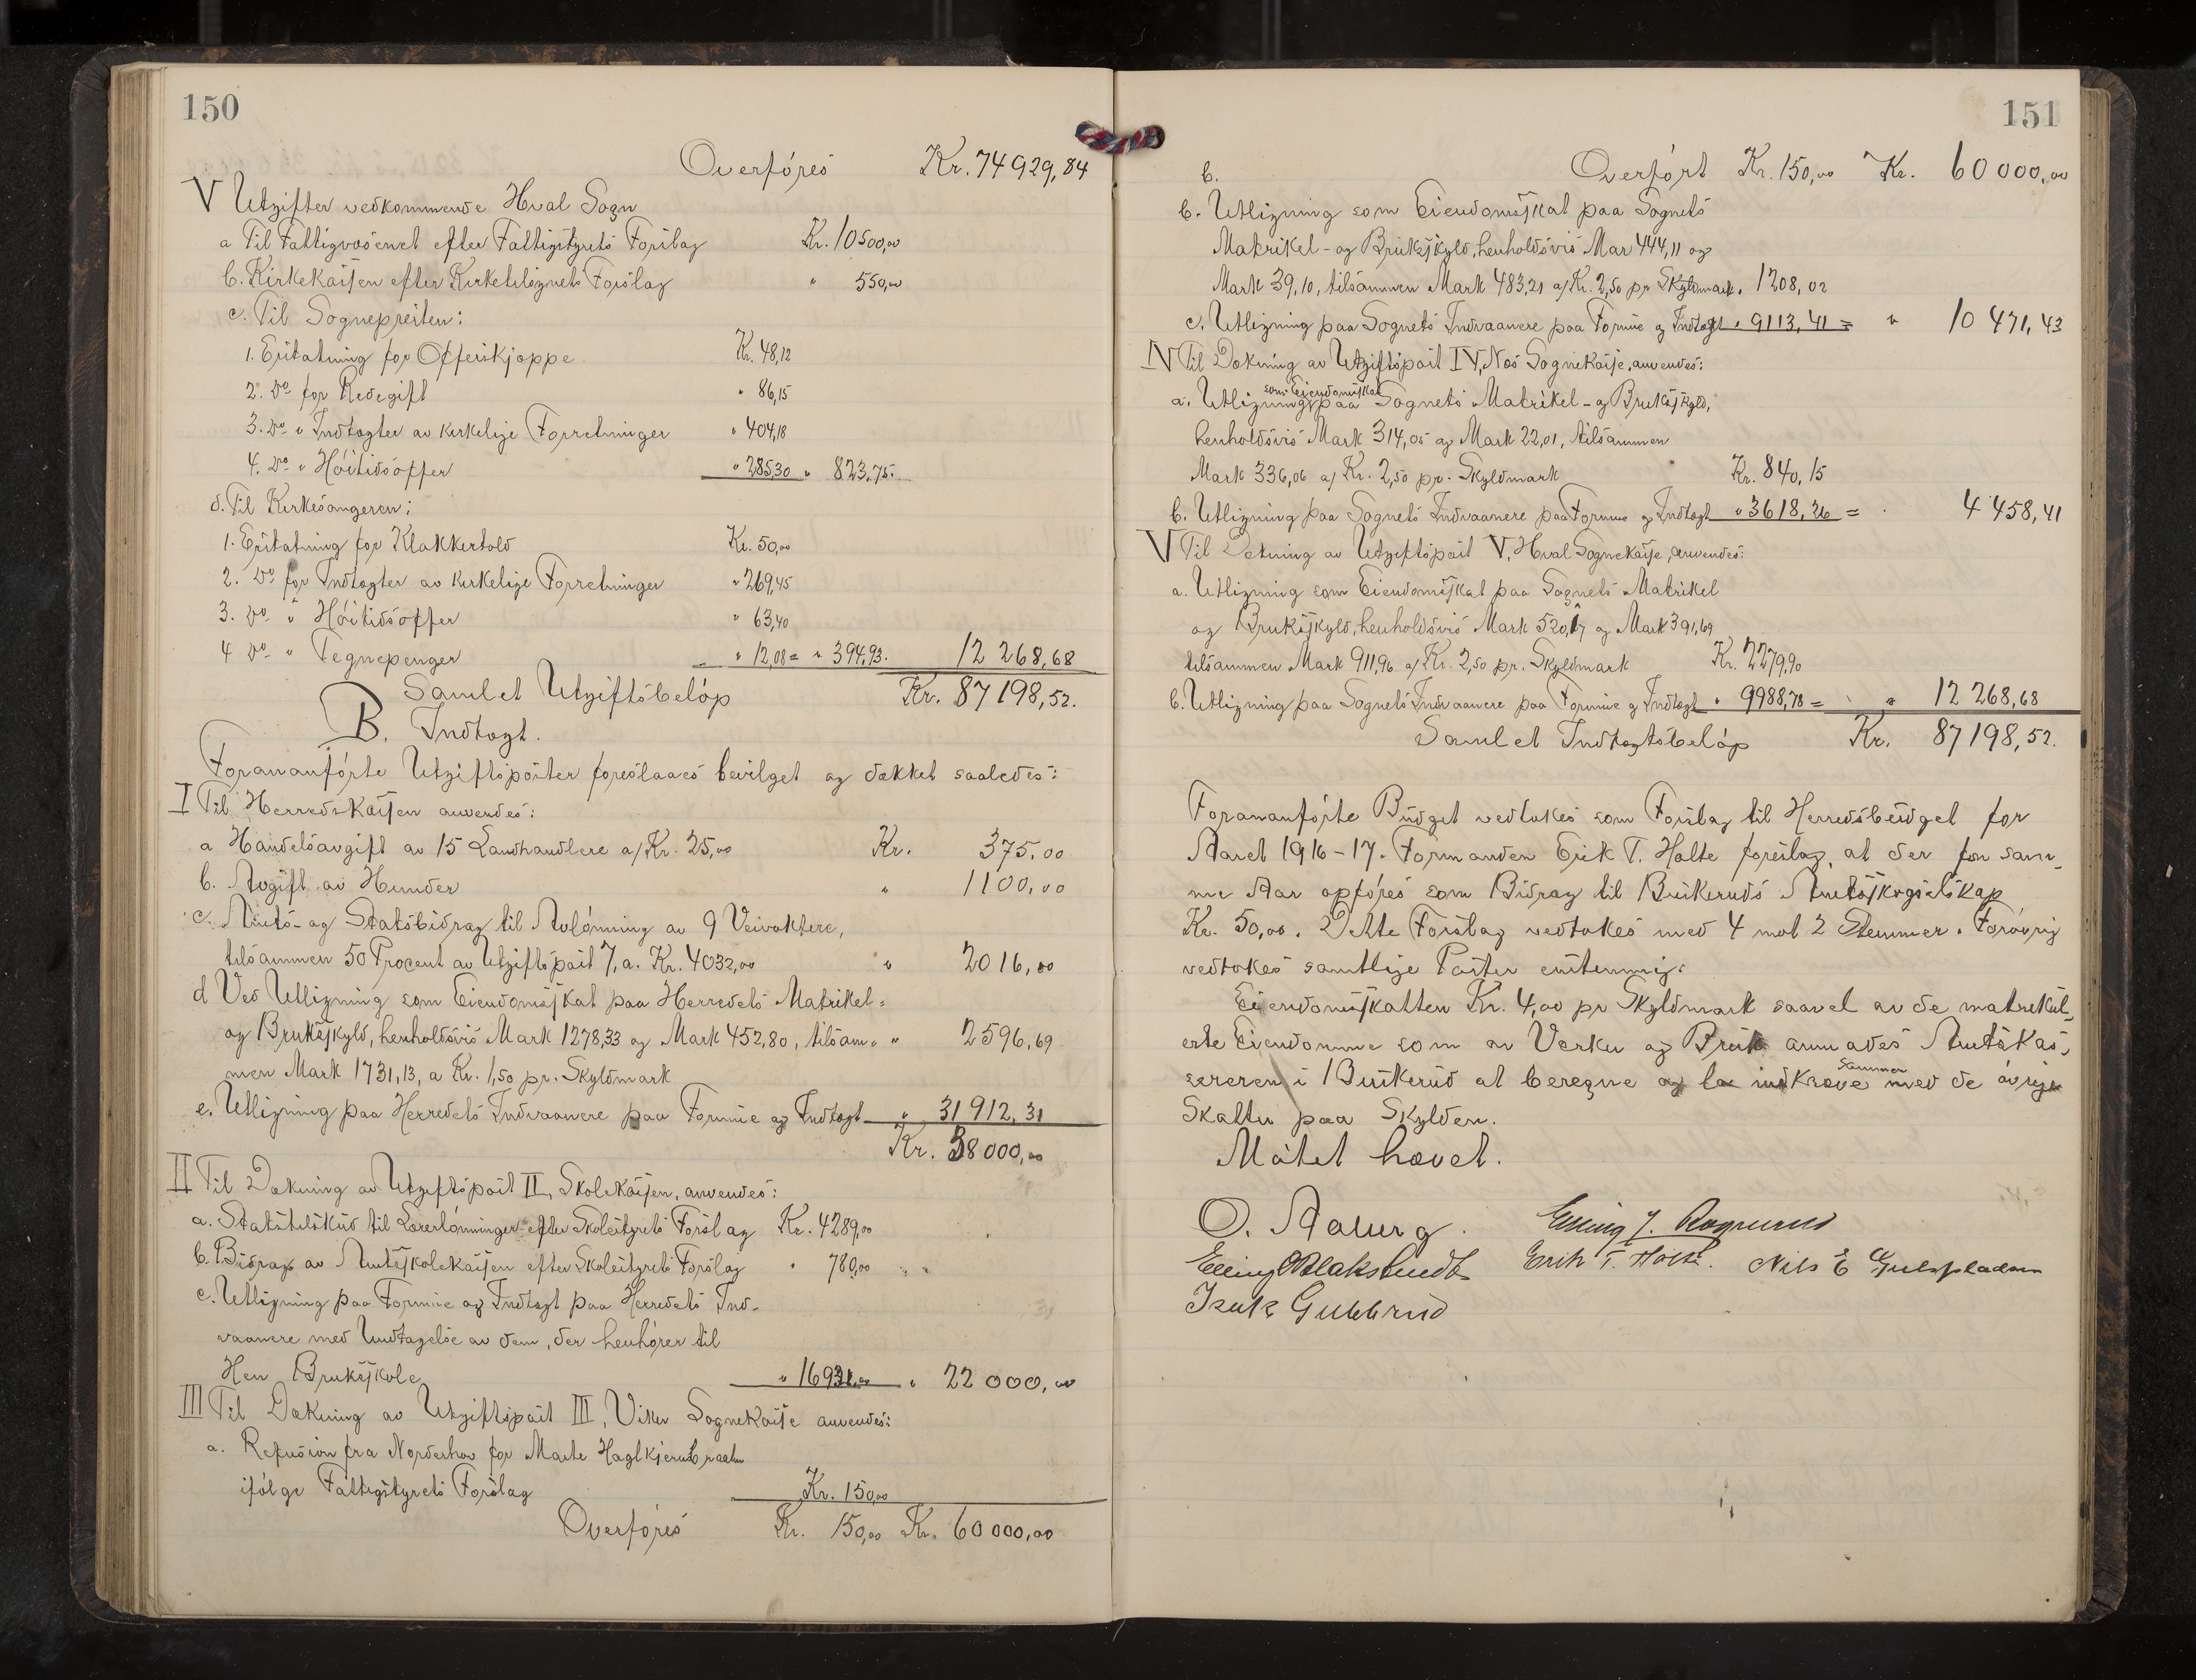 150
Overføres Kr. 74929,84
V Utgifter vedkommende Hval Sogn
a Til Fattigvæsenet efter Fattigstyrets Forslag Kr. 10500,00
b. Kirkekassen efter Kirketilsynets Forslag " 550,00
c. Til Sognepresten:
1. Erstatning for Offerskjæppe Kr. 48,12
2. Do for Redegift " 86,15
3. Do " Indtægter av kirkelige Forretninger " 404,18
4. Do " Høitidsoffer " 285,30 " 823,75.
d. Til Kirkesangeren:
1. Erstatning for Klokkertold Kr. 50,00
2. Do for Indtægter av kirkelige Forretninger " 269,45
3. Do " Høitidsoffer " 63,40
4 Do " Tegnepenger " 12,08 = " 394,93. 12 268,68
Samlet Utgiftsbeløp Kr. 87198,52.
B. Indtægt.
Forananførte Utgiftsposter foreslaaes bevilget og dækket saaledes:
I Til Herredskassen anvendes:
a Handelsavgift av 15 Landhandlere a/ Kr. 25,00 Kr. 375,00
b. Avgift av Hunder " 1100,00
c. Amts- og Statsbidrag til Avlønning av 9 Veivoktere,
tilsammen 50 Procent av Utgiftspost 7, a. Kr. 4032,00 " 2016,00
d Ved Utligning som Eiendomsskat paa Herredets Matrikel-
og Bruksskyld, henholdsvis Mark 1278,33 og Mark 452,80, tilsam- " 2596,69
men Mark 1731,13, a Kr. 1,50 pr. Skyldmark
e. Utligning paa Herredets Indvaanere paa Formue og Indtægt " 31912,31
Kr. 38000,00
II Til Dækning av Utgiftspost II, Skolekassen, anvendes:
a. Statstilskud til Lærerlønninger efter Skolestyrets Forslag Kr. 4289,00
b. Bidrag av Amtsskolekassen efter Skolestyrets Forslag " 780,00 " "
c. Utligning paa Formue og Indtægt paa Herredets Ind-
vaanere med Undtagelse av dem, der henhører til
Hen Bruksskole " 16931,00 " 22000,00
III Til Dækning av Utgiftspost III, Viker Sognekasse anvendes:
a. Refusion fra Norderhov for Marte Haglkjernbraaten
ifølge Fattigstyrets Forslag Kr. 150,00
Overføres Kr. 150,00 Kr. 60000,00
151
b. Overført Kr. 150,00 Kr. 60000,00
b. Utligning som Eiendomsskat paa Sognets
Matrikel- og Bruksskyld, henholdsvis Mar 444,11 og
Mark 39,10, tilsammen Mark 483,21 a/ Kr. 2,50 pr Skyldmark. 1208,02
c. Utligning paa Sognets Indvaanere paa Formue og Indtægt " 9113,41 = " 10 471,43
IV Til Dækning av Utgiftspost IV, Nes Sognekasse, anvendes:
a. Utligning som Eiendomsskat paa Sognets Matrikel- og Bruksskyld,
henholdsvis Mark 314,05 og Mark 22,01, tilsammen
Mark 336,06 a/ Kr. 2,50 pr. Skyldmark Kr. 840,15
b. Utligning paa Sognets Indvaanere paa Formue og Indtægt " 3618,26 = " 4458,41
V Til Dækning av Utgiftspost V, Hval Sognekasse, anvendes:
a. Utligning som Eiendomsskat paa Sognets Matrikel
og Bruksskyld, henholdsvis Mark 520,27 og Mark 391,69
tilsammen Mark 911,96 a/ Kr. 2,50 pr. Skyldmark Kr. 2279,90
b. Utligning paa Sognets Indvaanere paa Formue og Indtægt " 9988,78 = " " 12 268,68
Samlet Indtægtsbeløp Kr. 87198,52.
Forananførte Budget vedtokes som Forslag til Herredsbudget for
Aaret 1916-17. Formanden Erik T. Holte foreslog, at der for sam-
me Aar opføres som Bidrag til Buskeruds Amtsskogselskap
Kr. 50,00. Dette Forslag vedtokes med 4 mot 2 Stemmer. Forøvrig
vedtokes samtlige Poster enstemmig.
Eiendomsskatten Kr. 4,00 pr Skyldmark saavel av de matrikul-
erte Eiendomme som av Verker og Bruk anmodes Amtskas-
sereren i Buskerud at beregne og la indkræve sammen med de øvrige
Skatter paa Skylden.
Møtet hævet.
O. Aaberg. Elling J. Rognerud
Elling O Blakstvedt Erik T. Holte. Nils E Gulspladsen
Isak Gubberud